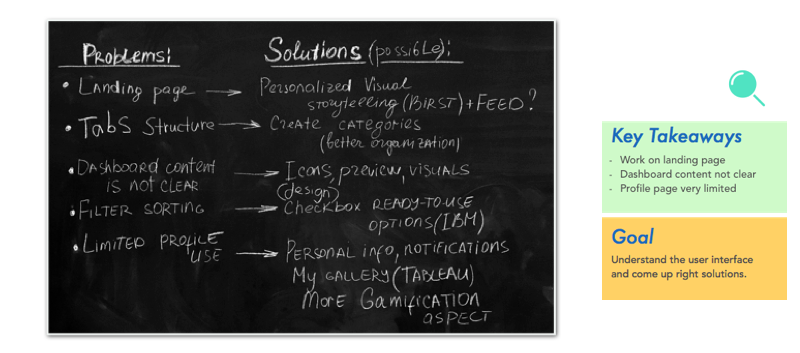 Problems:
Solutions (possible):
• Landing page → Personalized Visual
storytelling (BIRST) + FEED?
• Tabs Structure → Create categories
(better organization)
• Dashboard content
is not clear → Icons, preview, visuals
(design)
• Filter sorting → Checkbox ready-to-use
options (IBM)
• Limited profile
use → Personal info, notifications
My gallery (Tableau)
More Gamification
aspect
Key Takeaways
- Work on landing page
- Dashboard content not clear
- Profile page very limited
Goal
Understand the user interface
and come up right solutions.